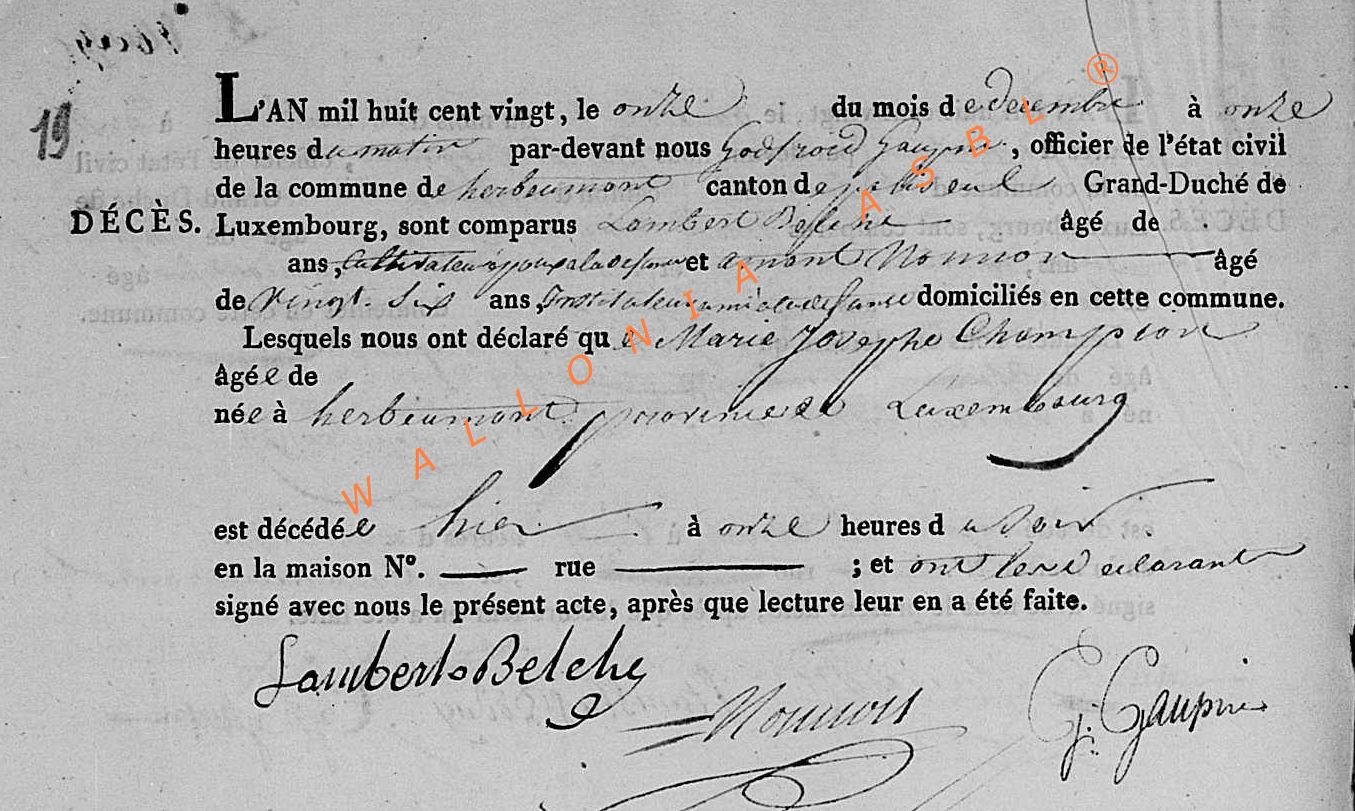 19
L'AN mil huit cent vingt, le onze du mois de decembre à onze
heures du matin par-devant nous Godfroid Gaupin, officier de l'état civil
de la commune de herbeumont canton de Grand-Duché de
DÉCÈS. Luxembourg, sont comparus Lambert âgé de
ans, Cultivateur époux a la defunte et Nonnon âgé
de Vingt-Six ans, Instituteur ami a la defunte domiciliés en cette commune.
Lesquels nous ont déclaré que Marie Josephe Champion
âgée de
née à herbeumont province de Luxembourg
est décédée hier à onze heures du Soir
en la maison N°. rue ; et ont les declarant
signé avec nous le présent acte, après que lecture leur en a été faite.
Lambert Belche
Nonnon
G. Gaupin
WALLONIA ASBL ®